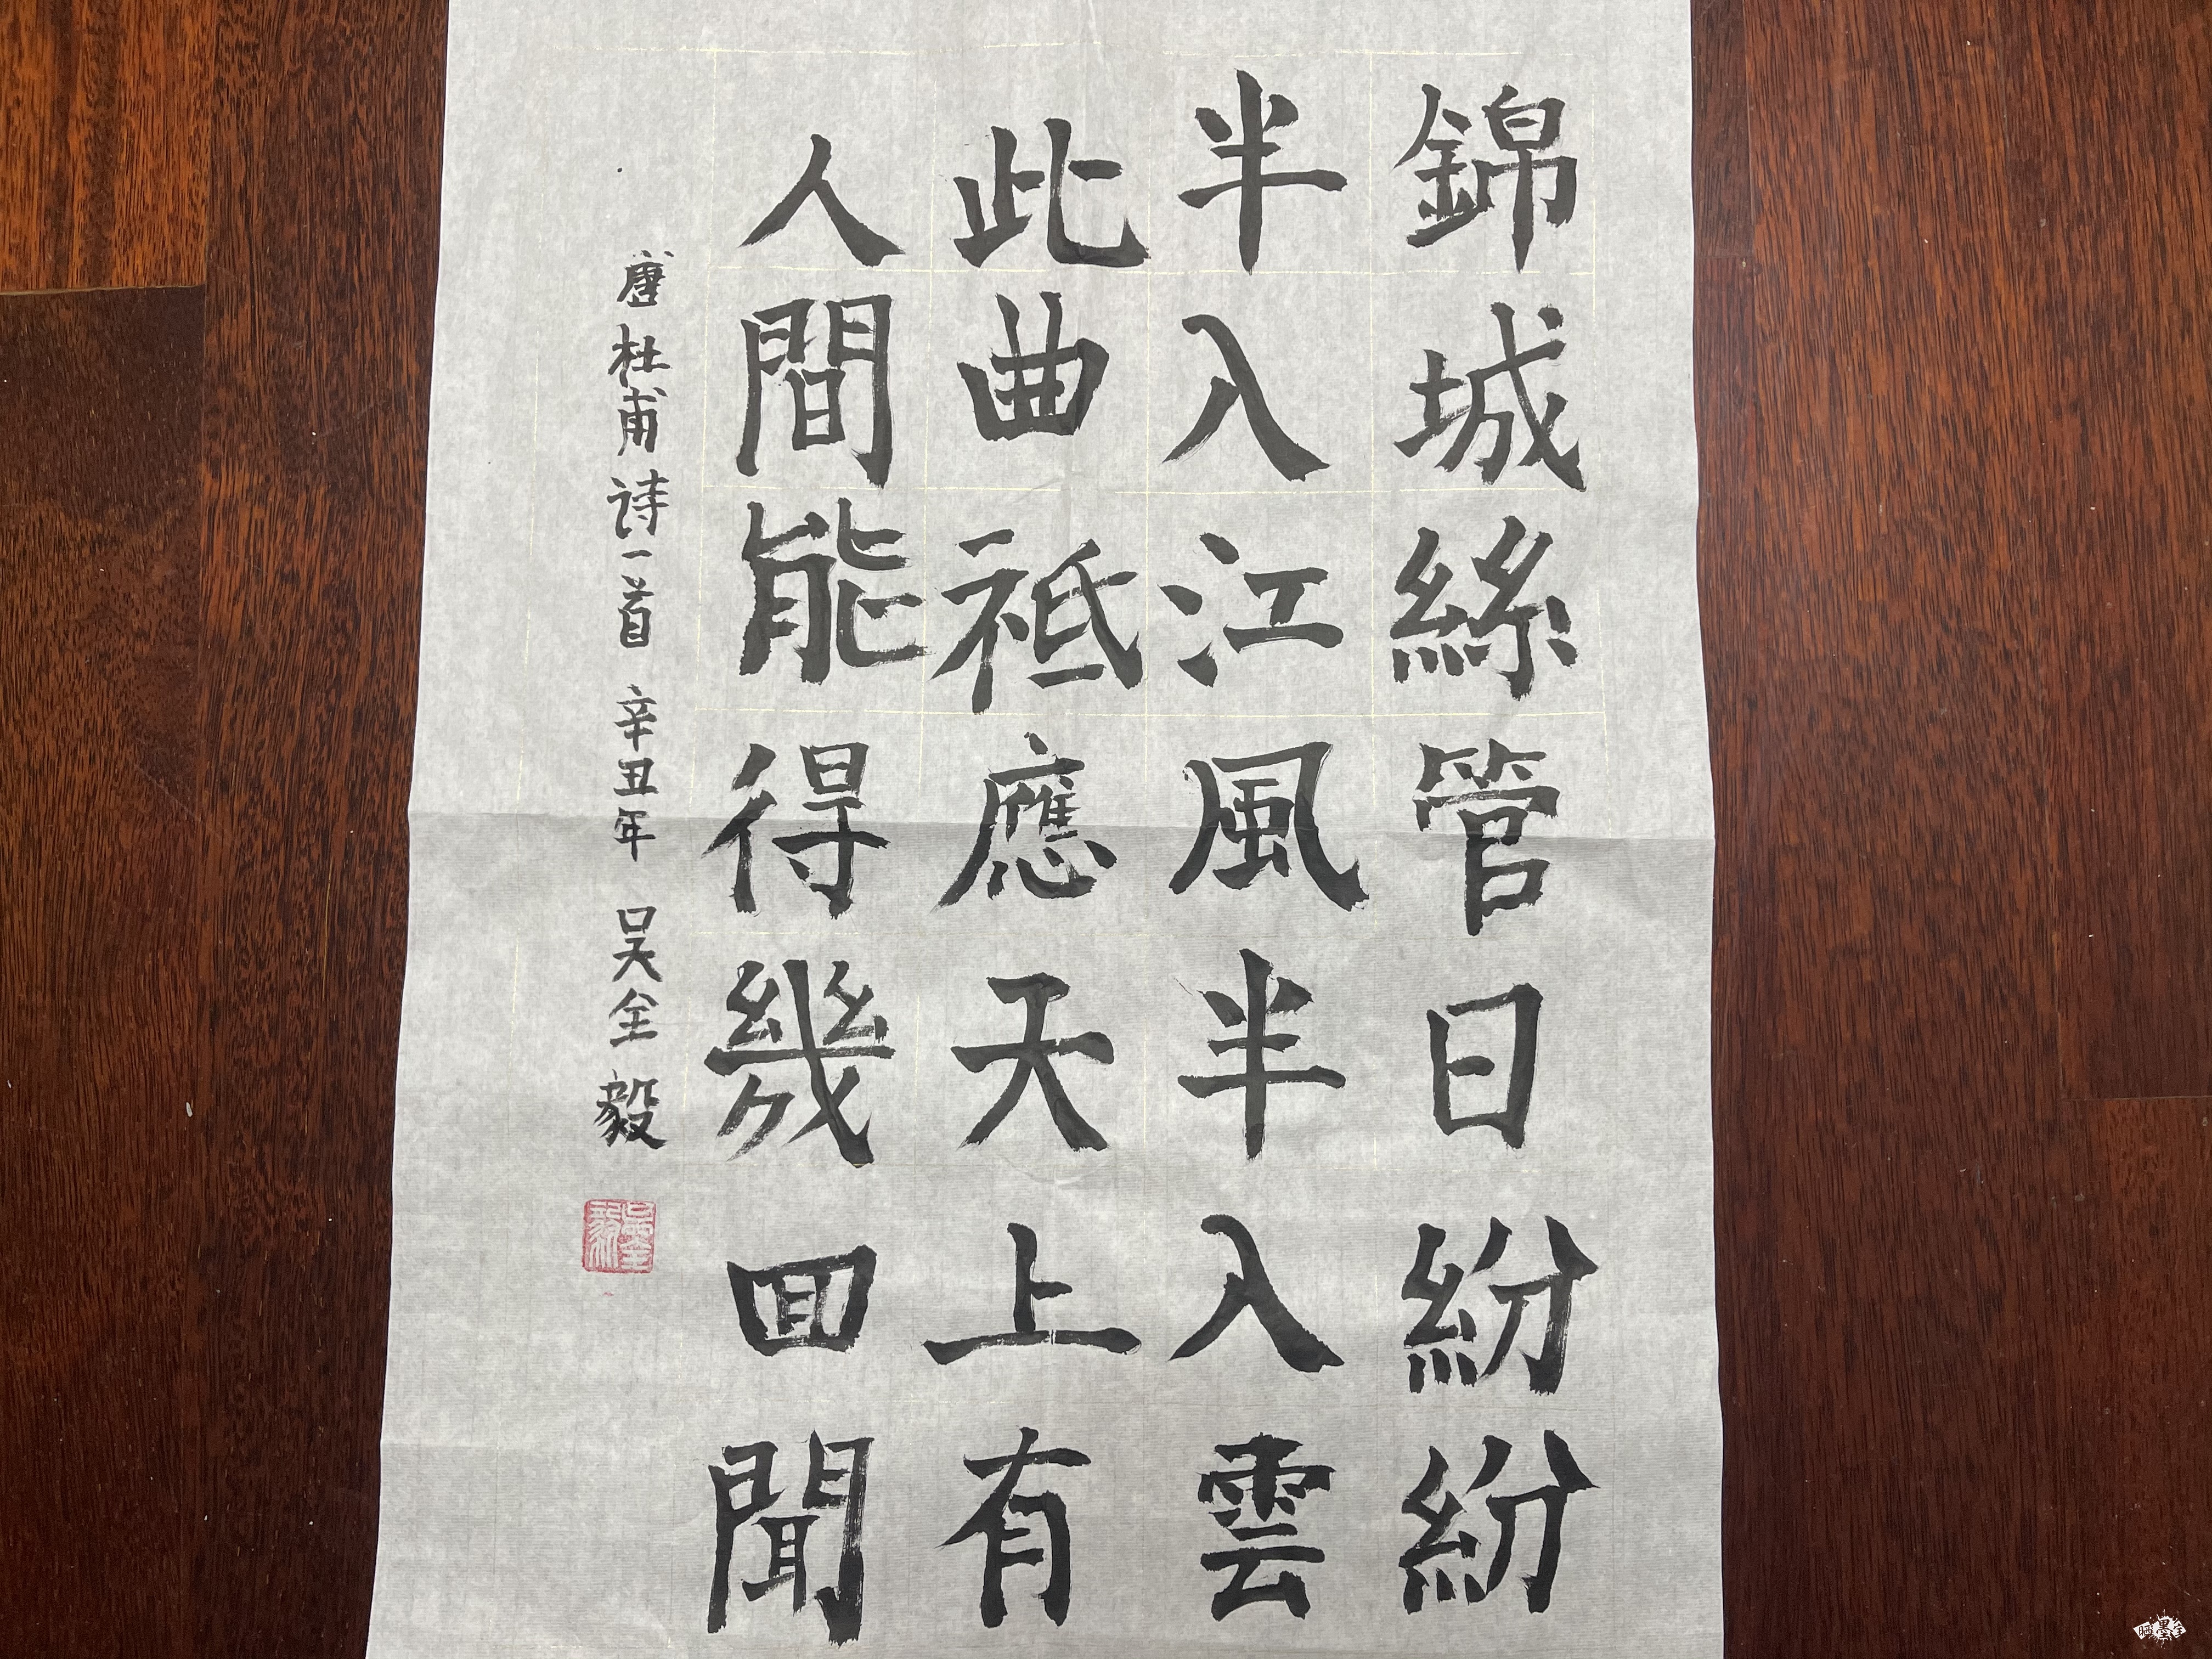 錦城絲管日紛紛
半入江風半入雲
此曲祗應天上有
人間能得幾回聞
唐杜甫诗一首 辛丑年 吴全毅